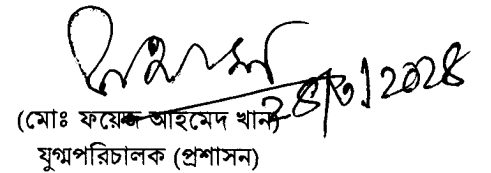 ২৪/৩/২০২৪
(মোঃ ফয়েজ আহমেদ খান)
যুগ্মপরিচালক (প্রশাসন)